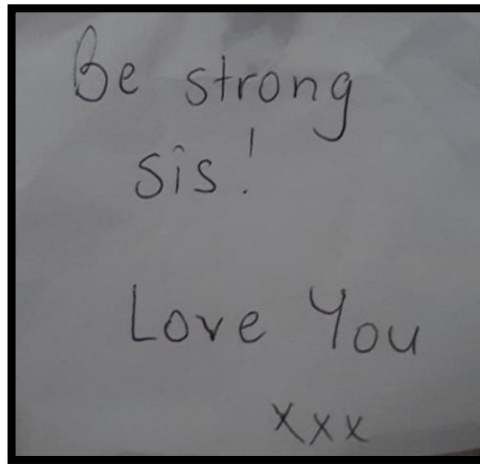 Be strong
sis!
Love You
xxx